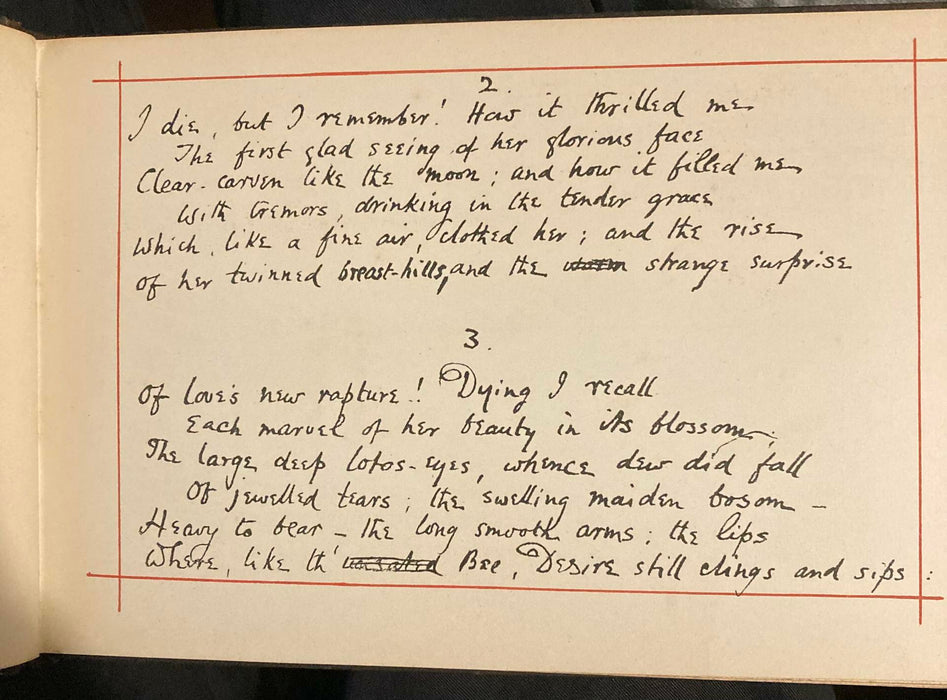 2.
I die, but I remember! How it thrilled me
The first glad seeing of her glorious face
Clear-carven like the moon; and how it filled me
With tremors, drinking in the tender grace
Which, like a fine air, clothed her; and the rise
of her twinned breast-hills, and the warm strange surprise
3.
Of love's new rapture! Dying I recall
Each marvel of her beauty in its blossom;
The large deep lotos-eyes, whence dew did fall
Of jewelled tears; the swelling maiden bosom -
Heavy to bear - the long smooth arms; the lips
Where, like th' unsated Bee, Desire still clings and sips: